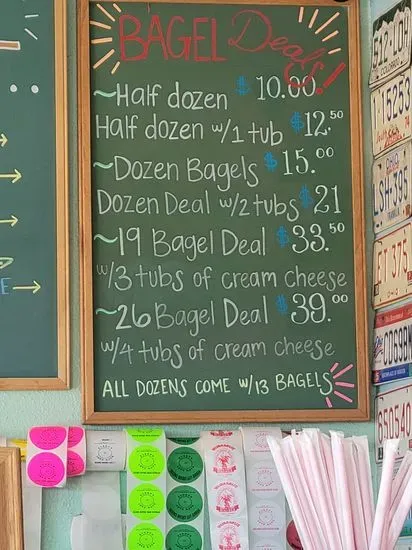 BAGEL Deals!
~Half dozen $10.00
Half dozen w/1 tub $12.50
~Dozen Bagels $15.00
Dozen Deal w/2 tubs $21
~19 Bagel Deal $33.50
w/3 tubs of cream cheese
~26 Bagel Deal $39.00
w/4 tubs of cream cheese
ALL DOZENS COME W/13 BAGELS